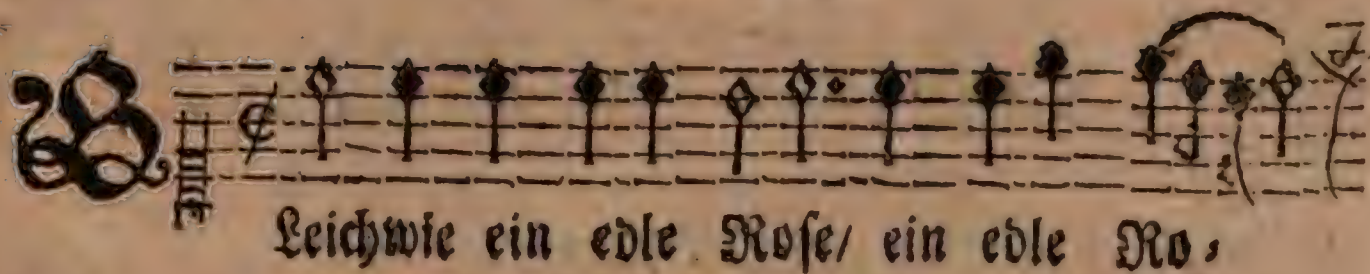 GLeichwie ein edle Roſe/ ein edle Ro⸗